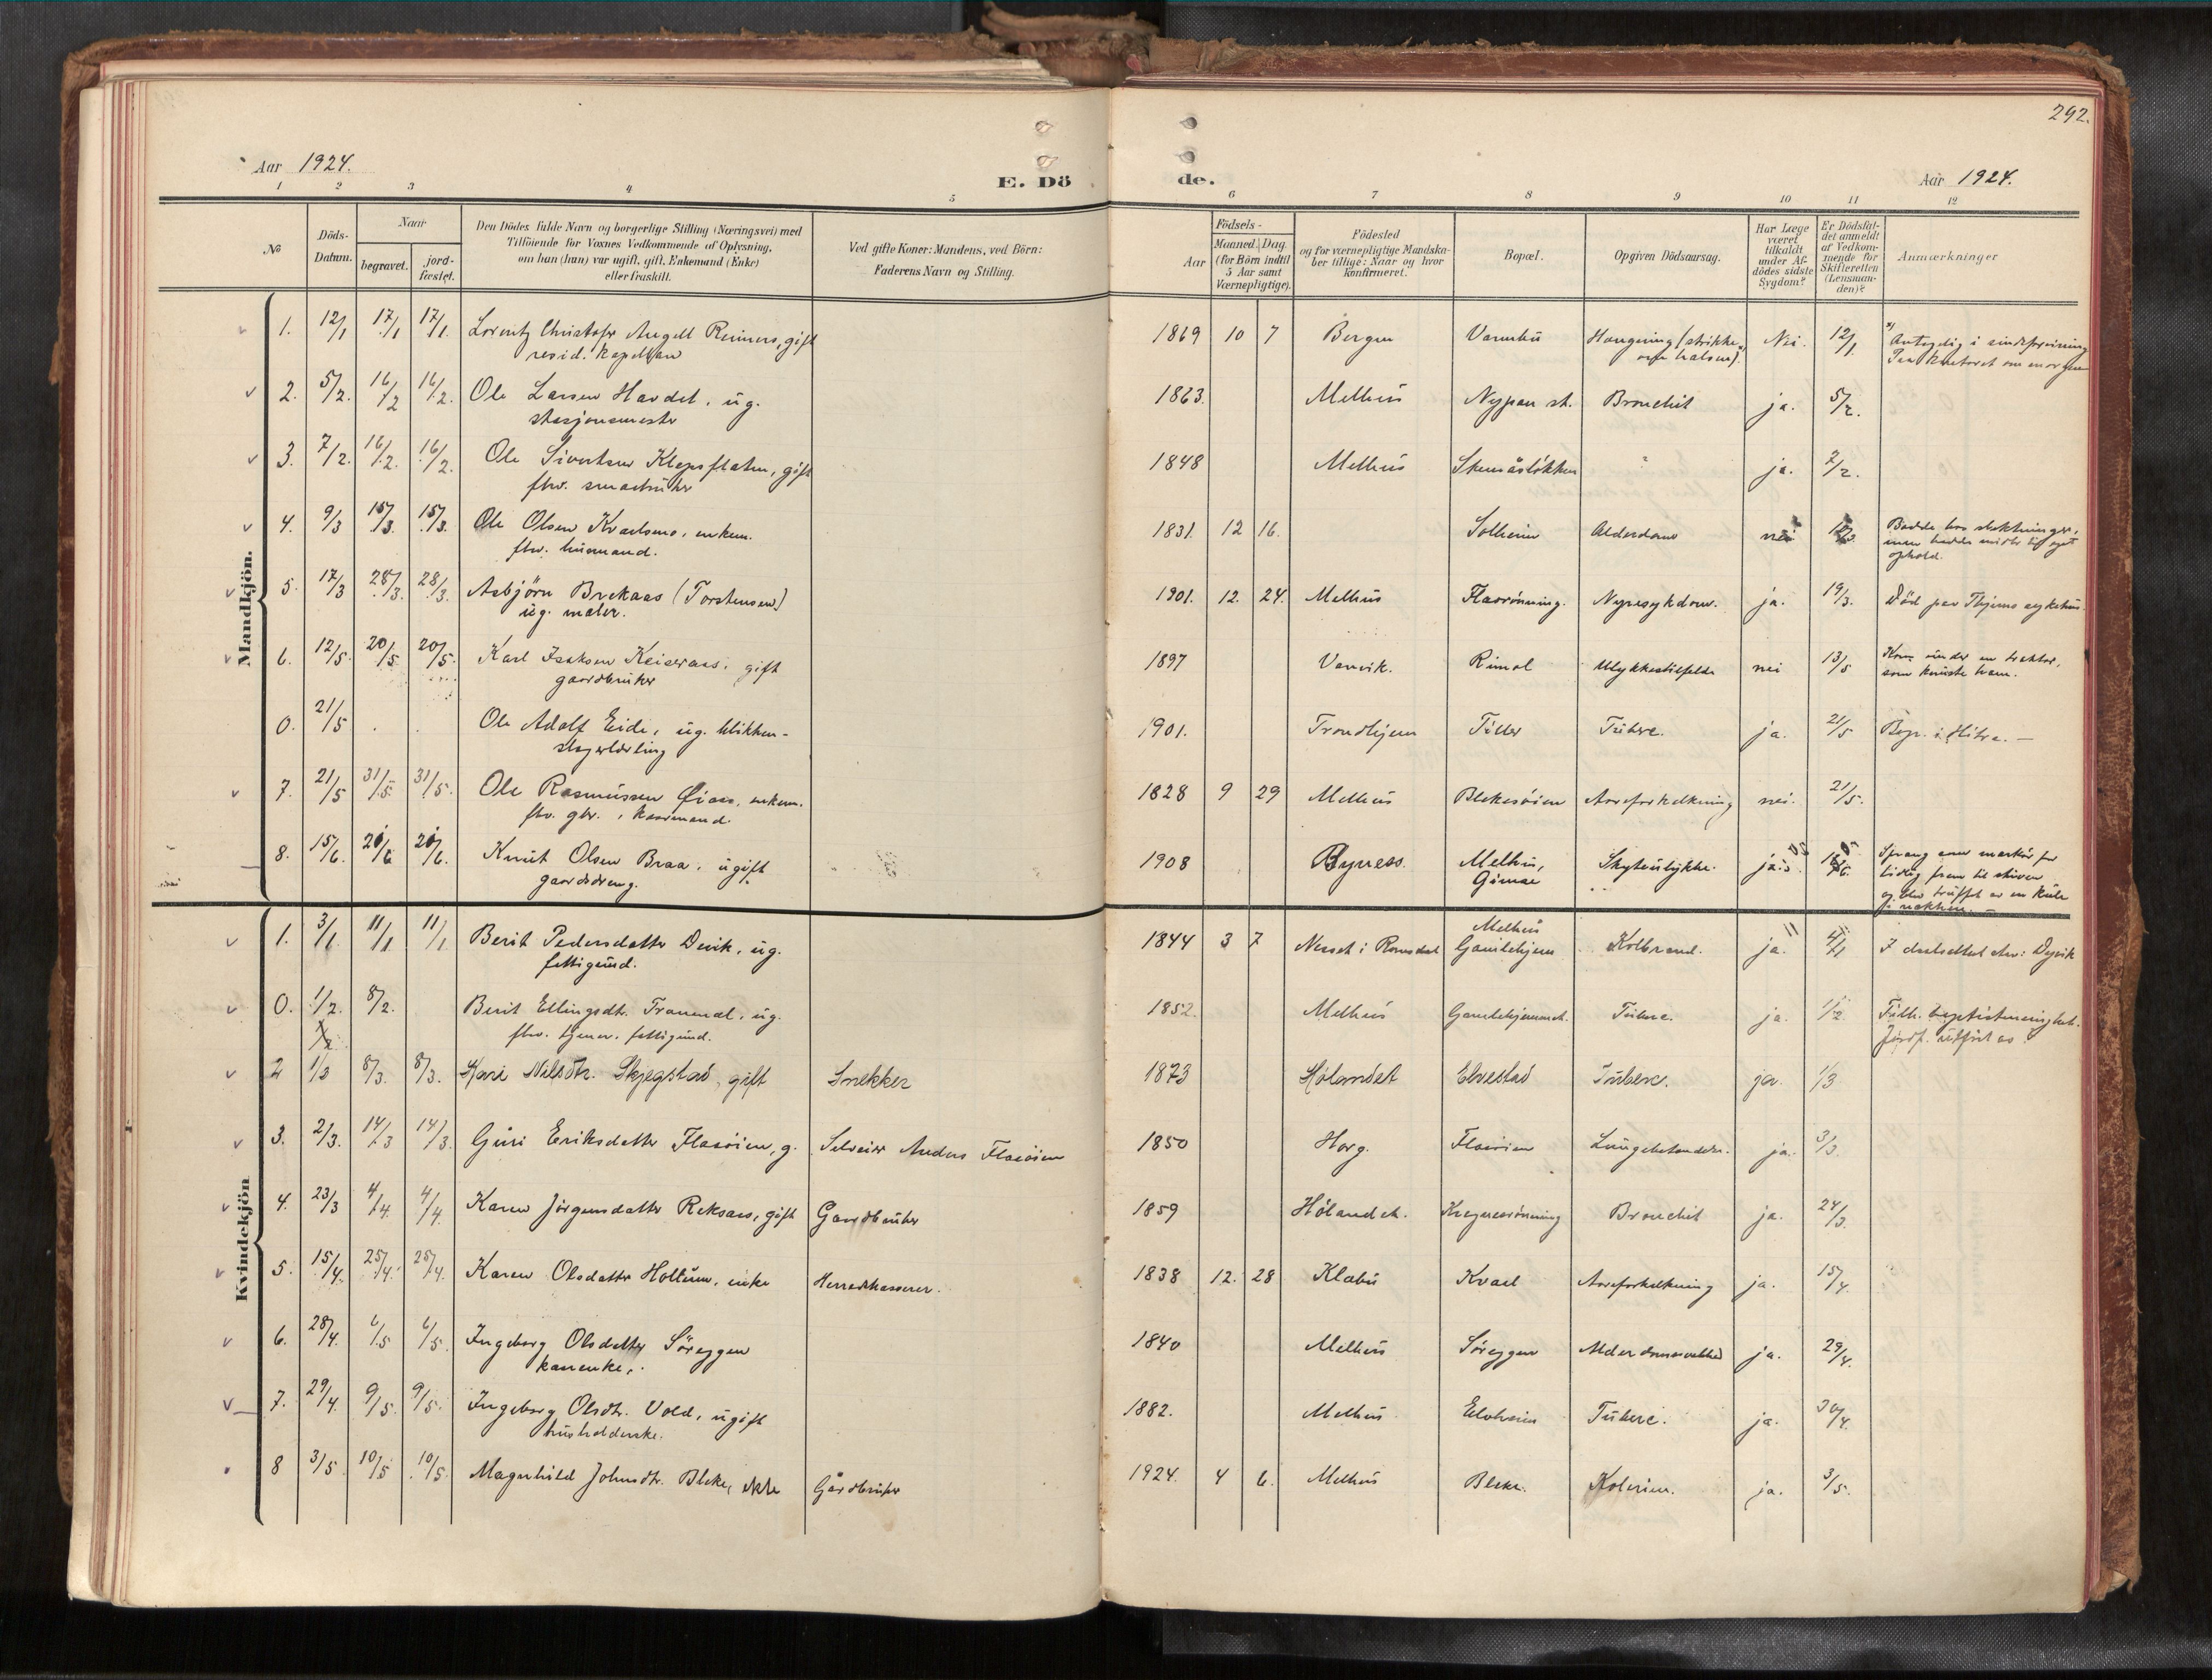 292.
Aar 1924.
E. Döde.
Aar 1924.
1 2 3 4 5 6 7 8 9 10 11 12
No
Döds-Datum.
Naar
begravet.
jord-fæstet.
Den Dödes fulde Navn og borgerlige Stilling (Næringsvei) med
Tilföiende for Voxnes Vedkommende af Oplysning,
om hun (han) var ugift, gift, Enkemand (Enke)
eller fraskilt.
Ved gifte Koner: Mandens, ved Börn:
Faderens Navn og Stilling.
Aar
Födsels-
Maaned. Dag.
(for Börn indtil
5 Aar samt
Værnepligtige).
Födested
og for værnepligtige Mandska-
ber tillige: Naar og hvor
konfirmeret.
Bopæl.
Opgiven Dödsaarsag.
Har Læge
været
tilkaldt
under Af-
dödes sidste
Sygdom?
Er Dödsfal-
det anmeldt
af Vedkom-
mende for
Skifteretten
(Lensman-
den)?
Anmærkninger
Mandkjön.
1. 12/1 17/1 17/1. Lorentz Christofer Angell Reimers, gift 1869 10 7 Bergen Varmbu Hængning (strikke Nei. 12/1. Antagelig i sindsforvirring
resid. kapellan om halsen).
2. 5/2. 16/2 16/2. Ole Larsen Havdel, ug. 1863. Melhus Nypan st. Bronchit ja. 5/2.
stasjonsmester
3. 7/2. 16/2. 16/2. Ole Sivertsen Klepsflaten, gift 1848 Melhus " ja. 7/2.
fhv. smaabruker
4. 9/3 15/3 15/3. Ole Olsen Kvaelsmo, enkem. 1831. 12 16. Solheim Alderdom nei Bodde hos slektninger,
fhv. husmand. men hadde midler til eget
ophold.
5. 17/3 28/3. 28/3. Asbjörn Brekaas (Torstensen) 1901. 12. 24. Melhus Flaarönning. Nyresykdom. ja. 19/3. Död paa Thjems sykehus
ug. maler.
6. 12/5. 20/5 20/5. Karl Isaksen Keiseraas, gift 1897 Vanvik. Rimol Ulykkestilfelde nei 13/5 Kom under en traktor,
gaardbruker som knuste ham.
0. 21/5 Ole Adolf Eide, ug. blikken- 1901. Trondhjem Tiller Tuberc. ja. 21/5 Begr. i Hitra. —
slagerlærling
7. 21/5 31/5. 31/5. Ole Rasmussen Öiaas, enkem. 1828 9 29 Melhus Blekesöien Aareforkalkning nei. 21/5.
fhv. gbr., kaarmand.
8. 15/6. 20/6 20/6. Knut Olsen Braa, ugift 1908 Byness. Melhus, Skyteulykke. ja. 16/6. Sprang som markör for
gaardsdreng. Gimse tidlig frem til skiven
og blev truffet av en kule
i nakken. —
Kvindekjön
1. 3/1 11/1 11/1 Berit Pedersdatter Devik, ug. 1844 3 7 Nesset i Romsdal Melhus Gamlehjem Kolbrand. ja. 4/1 I daabsattest skr: Dyvik
fattigund.
0. 1/2. 8/2. Berit Ellingsdtr. Tranmæl, ug. 1852. Melhus Gamlehjemmet. Tuberc. ja. 1/2. Tilh. baptistmenighet.
fhv. tjener. fattigund. Jordf. utfört av
2 1/3 8/3. 8/3. Kari Nilsdtr. Skjegstad, gift Snekker 1873 Hölandet Elvestad Tuberc. ja. 1/3
3. 2/3. 14/3 14/3. Guri Eriksdatter Flaaöien, g. Selveier Anders Flaaöien 1850 Horg. Flaaöien Lungebetændelse. ja. 3/3.
4. 23/3 4/4. 4/4. Karen Jörgensdatter Reksaas, gift Gaardbruker 1859 Hölandet. Bronchit ja. 24/3.
5. 15/4. 25/4. 25/4. Karen Olsdatter Hollum, enke Herredskasserer. 1838 12. 28 Klæbu Kvael Aareforkalkning ja. 15/4.
6. 28/4. 6/5 6/5. Ingeborg Olsdatter Söreggen 1840 Melhus Söreggen Alderdomssvakhed ja. 29/4.
kaarenke.
7. 29/4. 9/5. 9/5. Ingeborg Olsdtr. Vold, ugift 1882. Melhus Elvheim Tuberc. ja. 30/4.
husholderske.
8 3/5. 10/5 10/5. Magnhild Johnsdtr. Bleke, ekte Gårdbruker 1924. 4 6. Melhus Bleke. Kolerine. ja. 3/5.